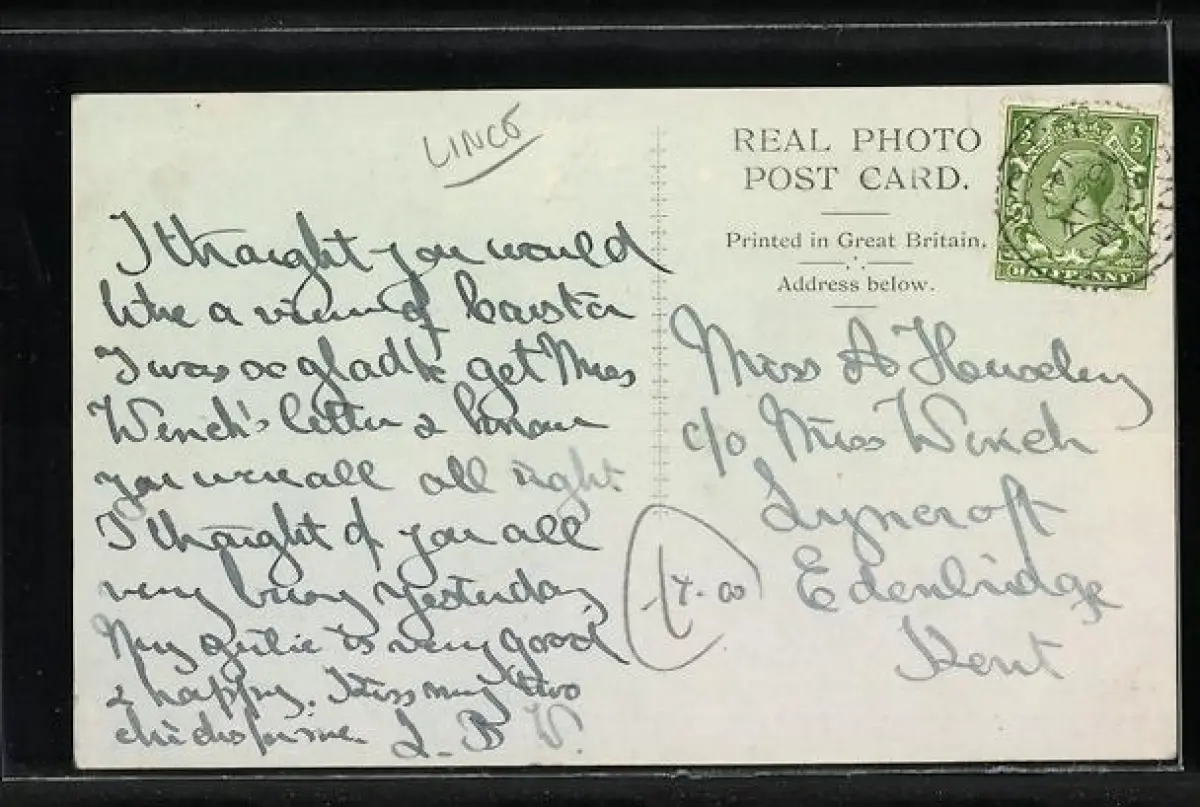 LINCO
I thought you would
like a view of Caistor
I was so glad to get Miss
Winch's letter & know
you were all all right.
I thought of you all
very busy yesterday
My girlie is very good
& happy. Kiss my two
chicks for me. L. B W.
REAL PHOTO
POST CARD.
Printed in Great Britain.
Address below.
HALFPENNY
Miss A
c/o Miss Winch
Lyncroft
Edenbridge
Kent